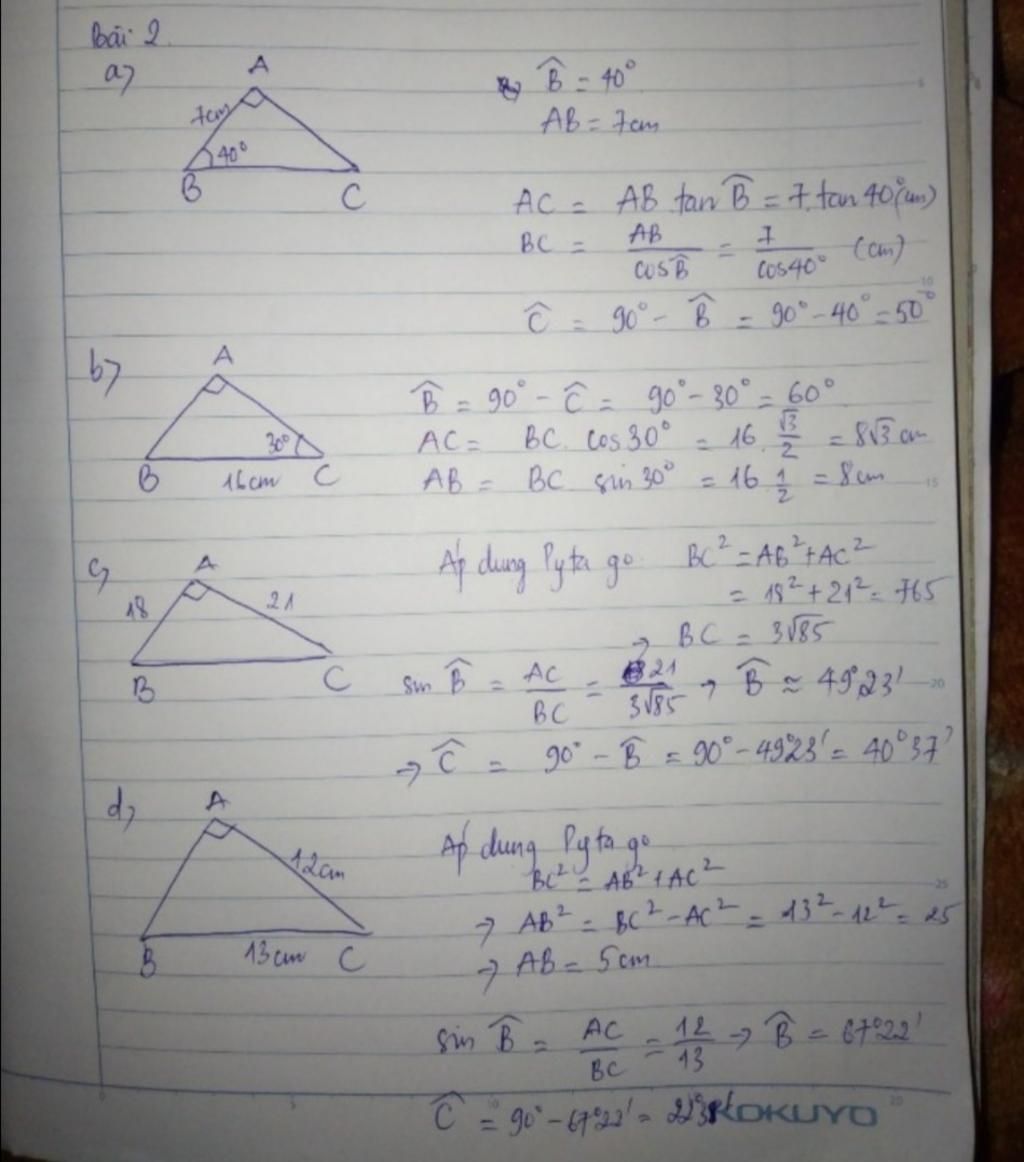 Bài 2.
a)
A
7cm
40°
B
C
B̂ = 40°
AB = 7cm
AC = AB . tan B̂ = 7. tan 40° (cm)
BC = AB / cos B̂ = 7 / cos 40° (cm)
Ĉ = 90° - B̂ = 90° - 40° = 50°
b)
A
30°
B
16cm
C
B̂ = 90° - Ĉ = 90° - 30° = 60°
AC = BC . cos 30° = 16 . √3/2 = 8√3 cm
AB = BC . sin 30° = 16 . 1/2 = 8cm
c)
A
18
21
B
C
Áp dung Pyta go BC² = AB² + AC²
= 18² + 21² = 765
→ BC = 3√85
sin B̂ = AC / BC = 21 / 3√85 → B̂ ≈ 49°23'
→ Ĉ = 90° - B̂ = 90° - 49°23' = 40°37'
d)
A
12cm
B
13cm
C
Áp dung Pyta go
BC² = AB² + AC²
→ AB² = BC² - AC² = 13² - 12² = 25
→ AB = 5cm
sin B̂ = AC / BC = 12 / 13 → B̂ = 67°22'
Ĉ = 90° - 67°22' =
KOKUYO